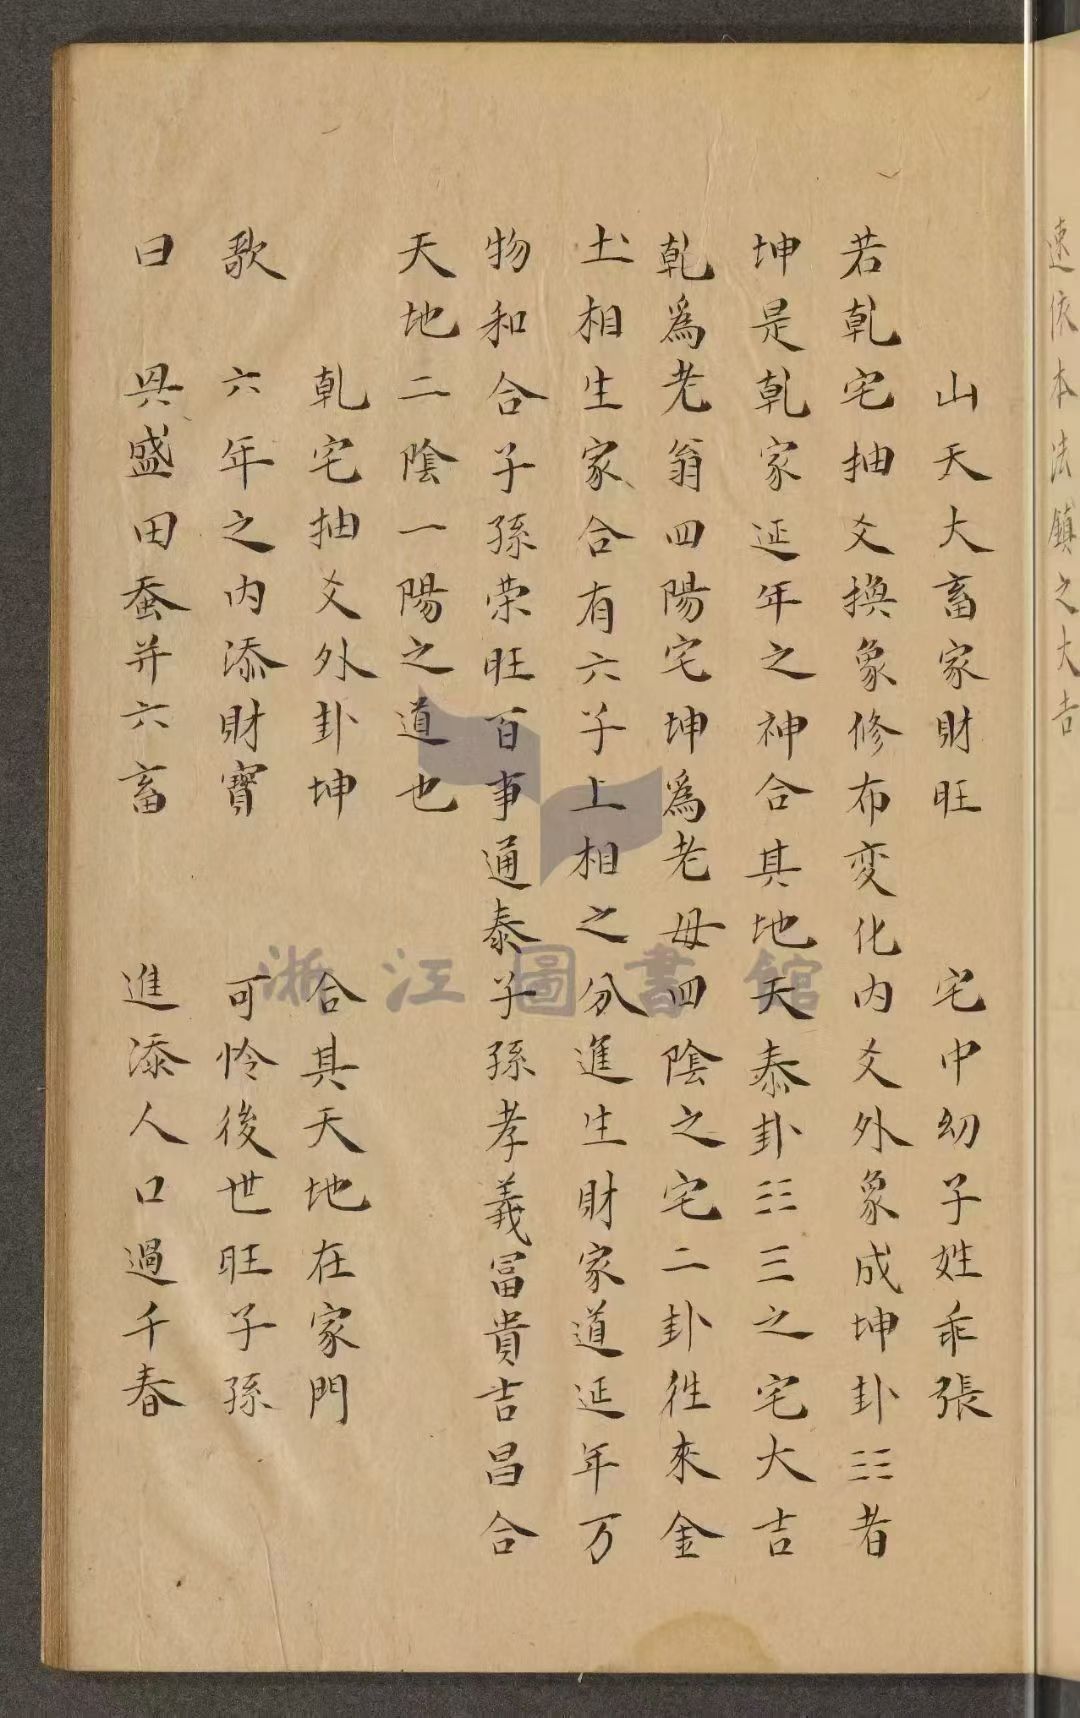 速依本法鎮之大吉
山天大畜家財旺　宅中幼子姓乖張
若乹宅抽爻換象修布变化内爻外象成坤卦☷者
坤是乹家延年之神合其地天泰卦☷☰之宅大吉
乹爲老翁四陽宅坤爲老母四陰之宅二卦徃來金
土相生家合有六子上相之分進生財家道延年万
物和合子孫荣旺百事通泰子孫孝義冨貴吉昌合
天地二陰一陽之道也
乹宅抽爻外卦坤　合其天地在家門
歌　六年之内添財寳　可怜後世旺子孫
曰　具盛田蚕并六畜　進添人口過千春
浙江圖書館